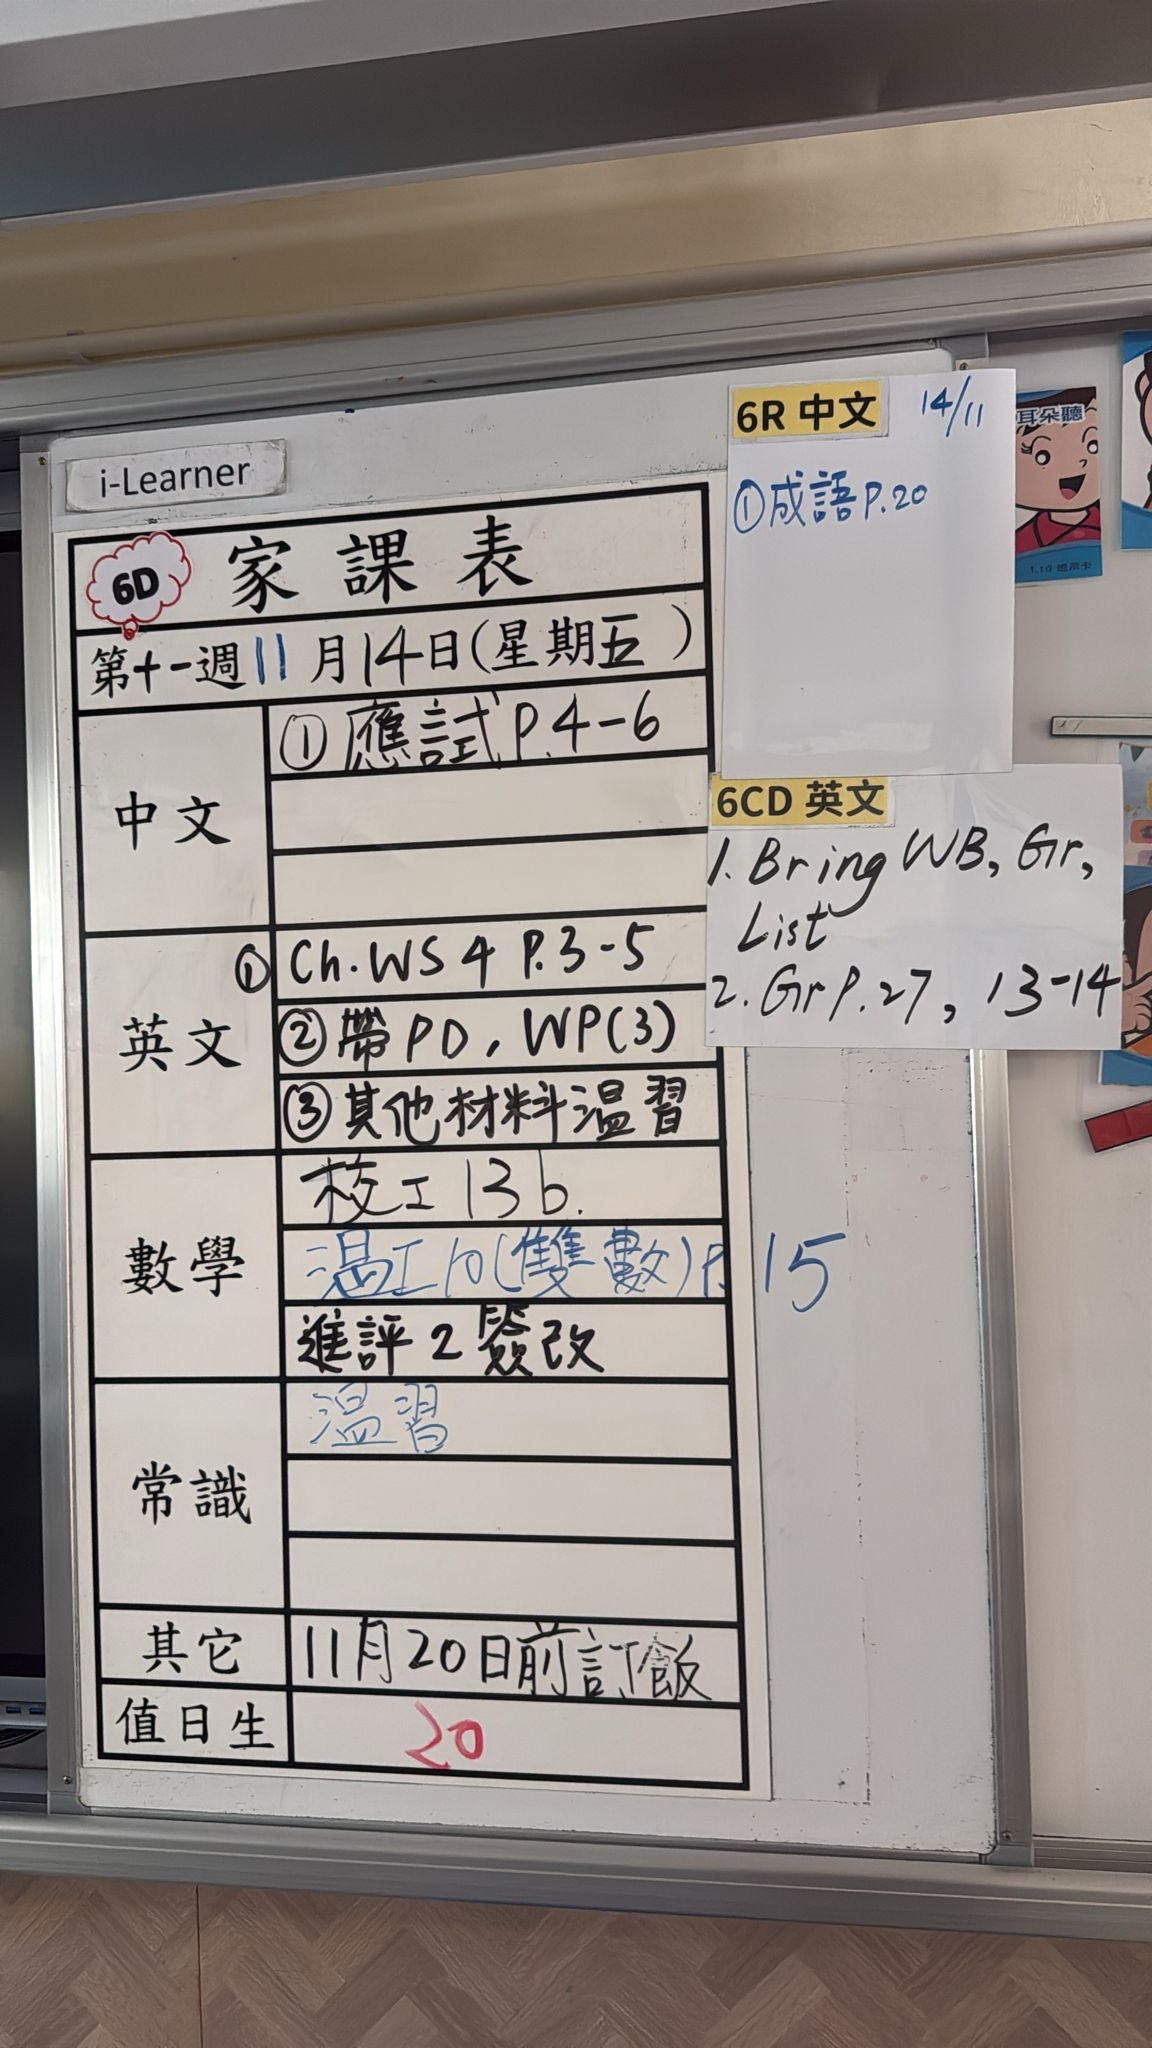 i-Learner
6D
家課表
第十一週11月14日(星期五)
中文
①應試P.4-6
英文
① Ch.WS 4 P.3-5
②帶PD, WP(3)
③其他材料温習
數學
校工13b.
温工10(雙數)P.15
進評2簽改
常識
温習
其它
11月20日前訂飯
值日生
20
6R 中文
14/11
①成語P.20
6CD 英文
1. Bring WB, Gr,
List
2. Gr P.27, 13-14
耳朵聽